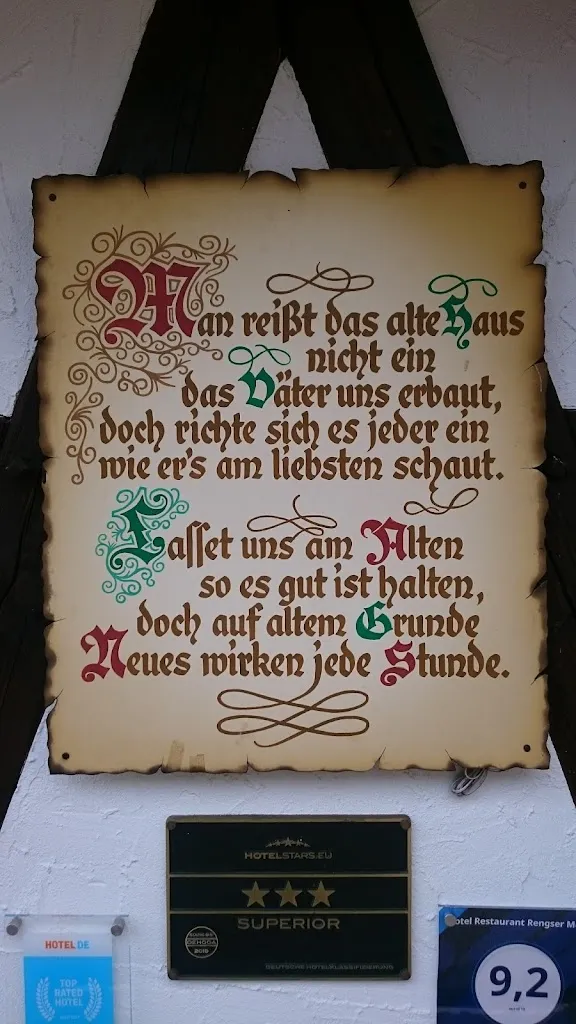 Man reißt das alte Haus
nicht ein
das Väter uns erbaut,
doch richte sich es jeder ein
wie er's am liebsten schaut.
Lasset uns am Alten
so es gut ist halten,
doch auf altem Grunde
Neues wirken jede Stunde.
HOTELSTARS.EU
SUPERIOR
DEHOGA
DEUTSCHE HOTELKLASSIFIZIERUNG
HOTEL DE
TOP
RATED
HOTEL
Hotel Restaurant Rengser M
9,2